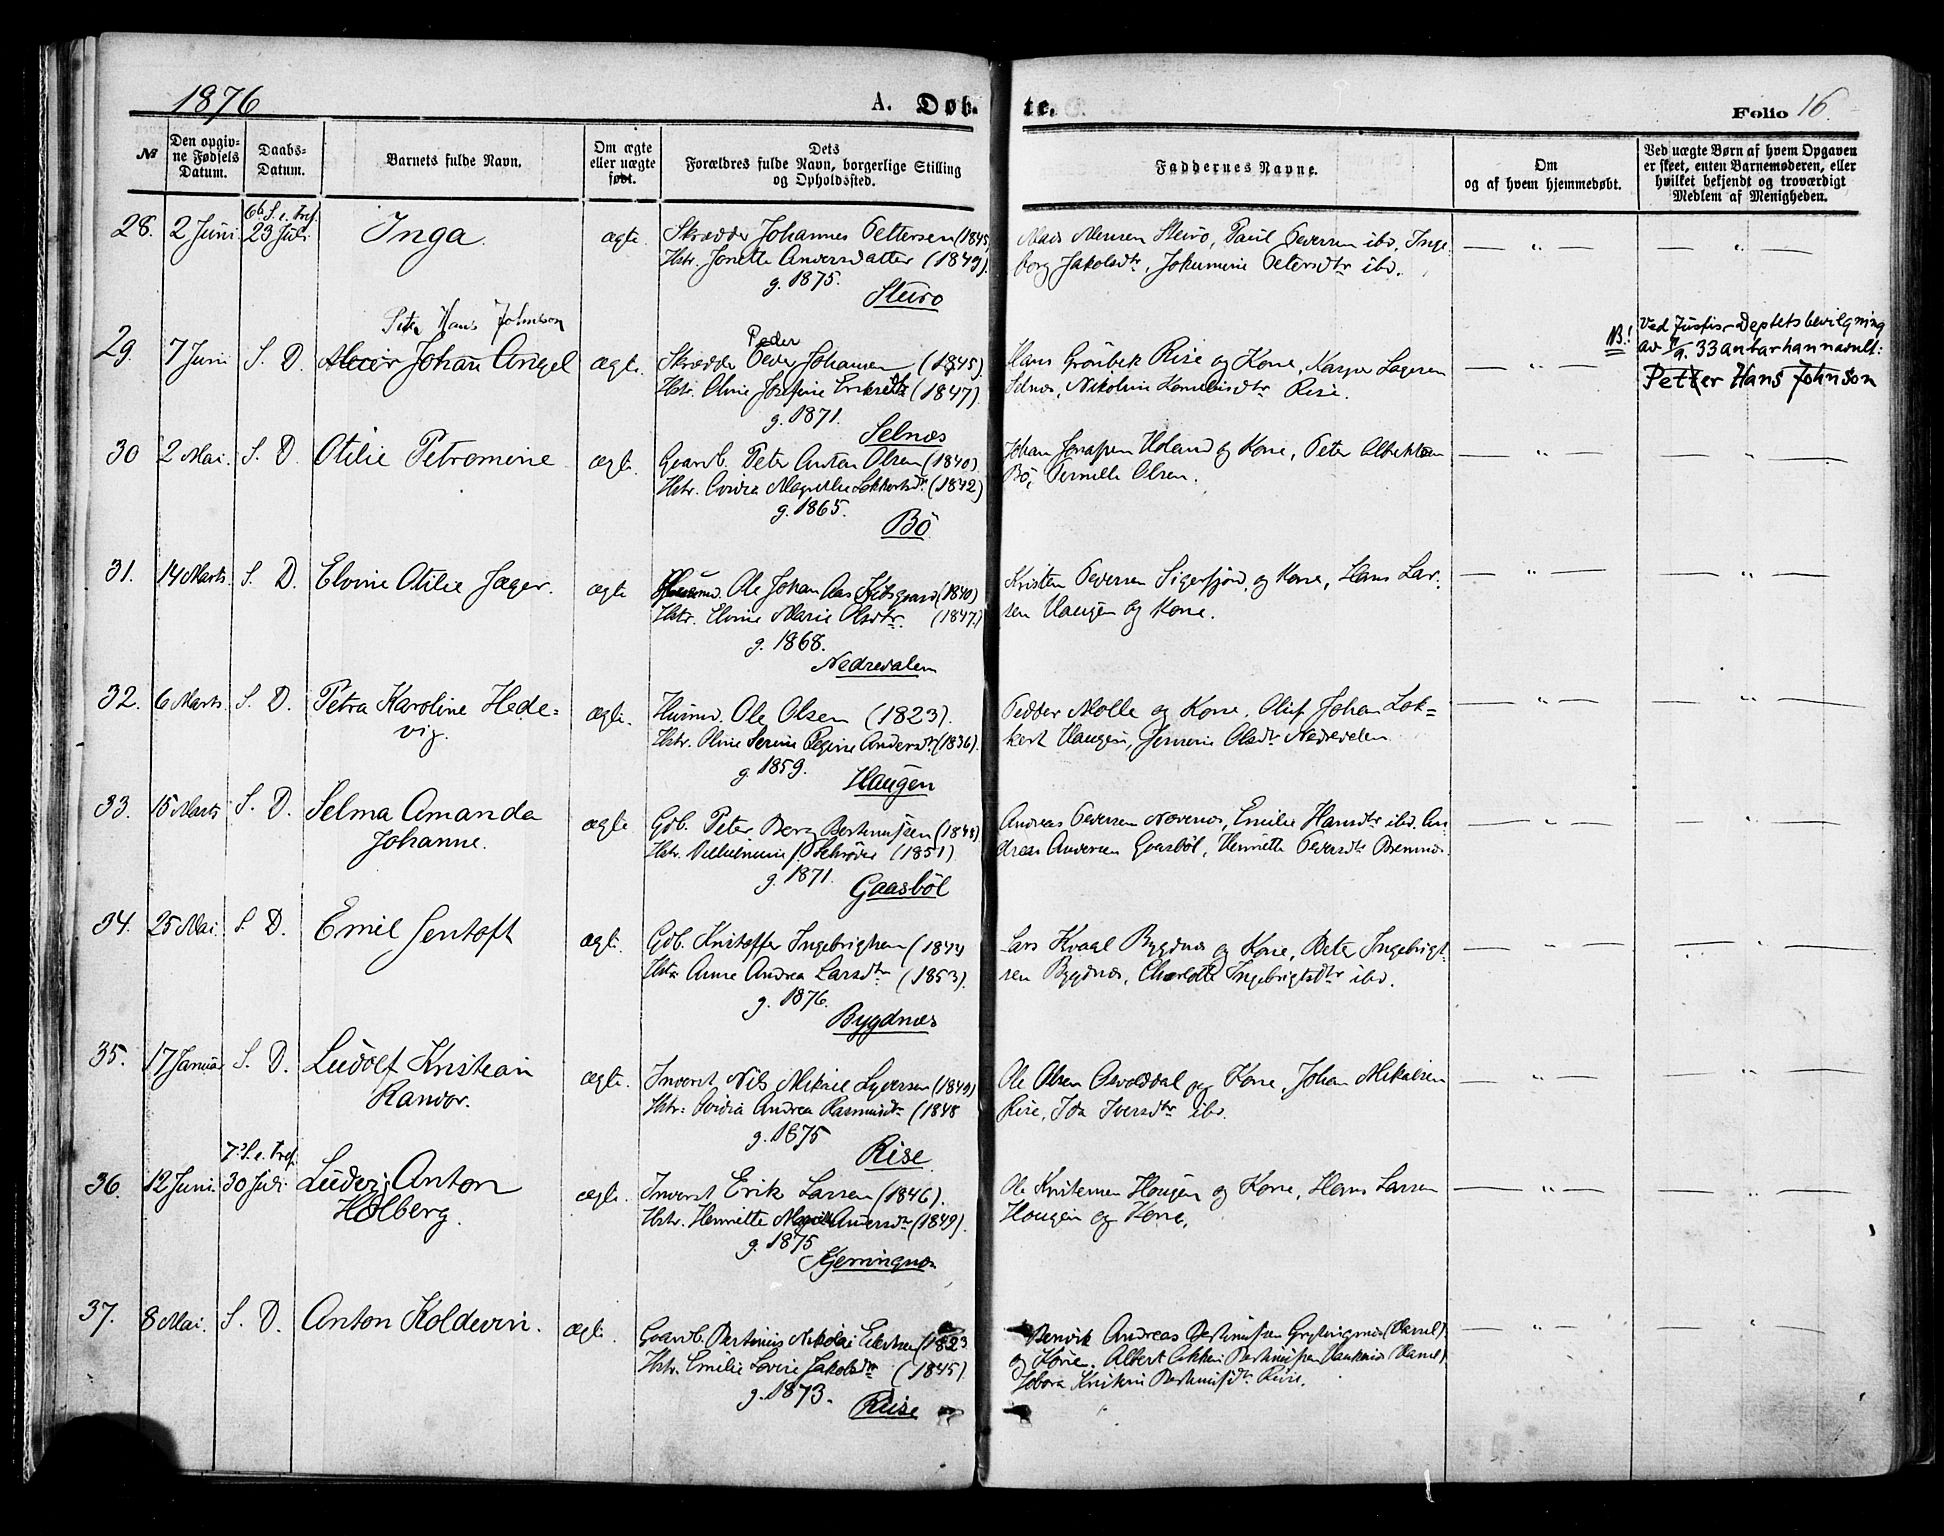 1876
A. Døb-
te.
Folio 16.
№
Den opgiv-
ne Fødsels
Datum.
Daabs-
Datum.
Barnets fulde Navn.
Om ægte
eller uægte
født.
Dets
Forældres fulde Navn, borgerlige Stilling
og Opholdssted.
Faddernes Navne.
Om
og af hvem hjemmedøbt.
Ved uægte Børn af hvem Opgaven
er skeet, enten Barnemoderen, eller
hvilket bekjendt og troværdigt
Medlem af Menigheden.
28. 2 Juni 6te S. e. Tref.
23 Juli. Inga. ægte. Skrædder Johannes Pettersen (1845
Hstr. Jonette Andersdatter (1849).
g. 1875.
Steiro
Mads Mensen Steiro, Paul Pedersen ibd, Inge-
borg Jakobsdtr, Jokumine Petersdtr ibd.
29. 7 Juni S. D. Peter Hans Johnson
Johan Angel ægte. Skrædder Peder Johansen (1845)
Hstr. Oline Josefine Eriksdtr (1847).
g. 1871.
Selnæs
Hans Grönbek Rise og Kone, Kasper Lagesen
Selnæs, Nikoline Kornelisdtr Rise.
NB! Ved Justis-Deptets bevilgning
av 7/9. 33 antar han navnet:
Petter Hans Johnson
30 2 Mai. S. D. Otilie Petromine ægte Gaardb. Peter Anton Olsen (1840).
Hstr. Magrethe Lokkertsdtr (1842)
g. 1865.
Bö
Johan Jonassen Uland og Kone, Peter
Bö, Pernille Olsen.
31. 14 Marts. S. D. Elvine Otilie Jæger. ægte Ole Johan Aas (1840)
Hstr. Elvine Marie Olsdtr. (1847.)
g. 1868.
Nedredalen
Kristen Pedersen Sigerfjord og Kone, Hans Lar-
sen Haugen og Kone.
32. 6 Marts. S. D. Petra Karoline Hede-
vig. ægte. Husmd. Ole Olsen (1823).
Hstr. Oline Serine Regine Andersdtr (1836).
g. 1859.
Haugen
Pedder Molle og Kone, Oluf Johan Lok-
kert Haugen, Jensine Olsdtr Nedredalen
33. 15 Marts S. D. Selma Amanda
Johanne. ægte Gdb. Peter Berg Berthinussen (1848)
Hstr. Vilhelmine f. Schröder (1851).
g. 1871.
Gaasböl
Andreas Pedersen Nævernes, Emilie Hansdtr ibd. An-
dreas Andersen Gaasböl, Henriette Pedersdtr
34. 25 Mai. S. D. Emil Jentoft ægte. Gdb. Kristoffer Ingebrigtsen (1844)
Hstr Anne Andrea Larsdtr (1853).
g. 1876.
Bygdnæs
Lars Kvaal Bygdnæs og Kone, Peter Ingebrigt-
sen Bygdnæs, Charlotte Ingebrigtsdtr ibd.
35. 17 Januar S. D. Ludolf Kristian
Ranvor. ægte. Inderst Nils Mikael Syversen (1849)
Hstr: Andrea Rasmusdtr (1848
g. 1875
Rise
Ole Olsen Osvolddal og Kone, Johan Mikalsen
Rise, Ida Iversdtr ibd.
36. 12 Juni. 7. S. e. Tref.
30 Juli. Ludvig Anton
Holberg. ægte. Inderst Erik Larsen (1846).
Hstr. Henriette Andersdtr (1849).
g. 1875
Kjerringnæs
Ole Kristensen Haugen og Kone, Hans Larsen
Haugen og Kone.
37. 8 Mai. S. D. Anton Koldevin. ægte. Gaardb. Bertinus Nikolai (1823
Hstr. Emilie Lovise Jakobsdtr (1845).
g. 1873.
Reise
Andreas Berthinussen
og Kone. Albert Berthinussen
Kristine Berthinusdtr Rise.